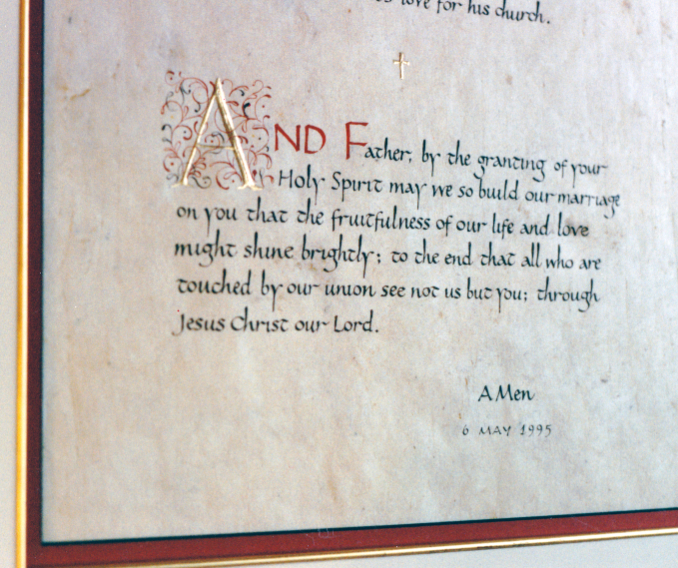 love for his church.
AND Father, by the granting of your
Holy Spirit may we so build our marriage
on you that the fruitfulness of our life and love
might shine brightly; to the end that all who are
touched by our union see not us but you; through
Jesus Christ our Lord.
AMen
6 MAY 1995